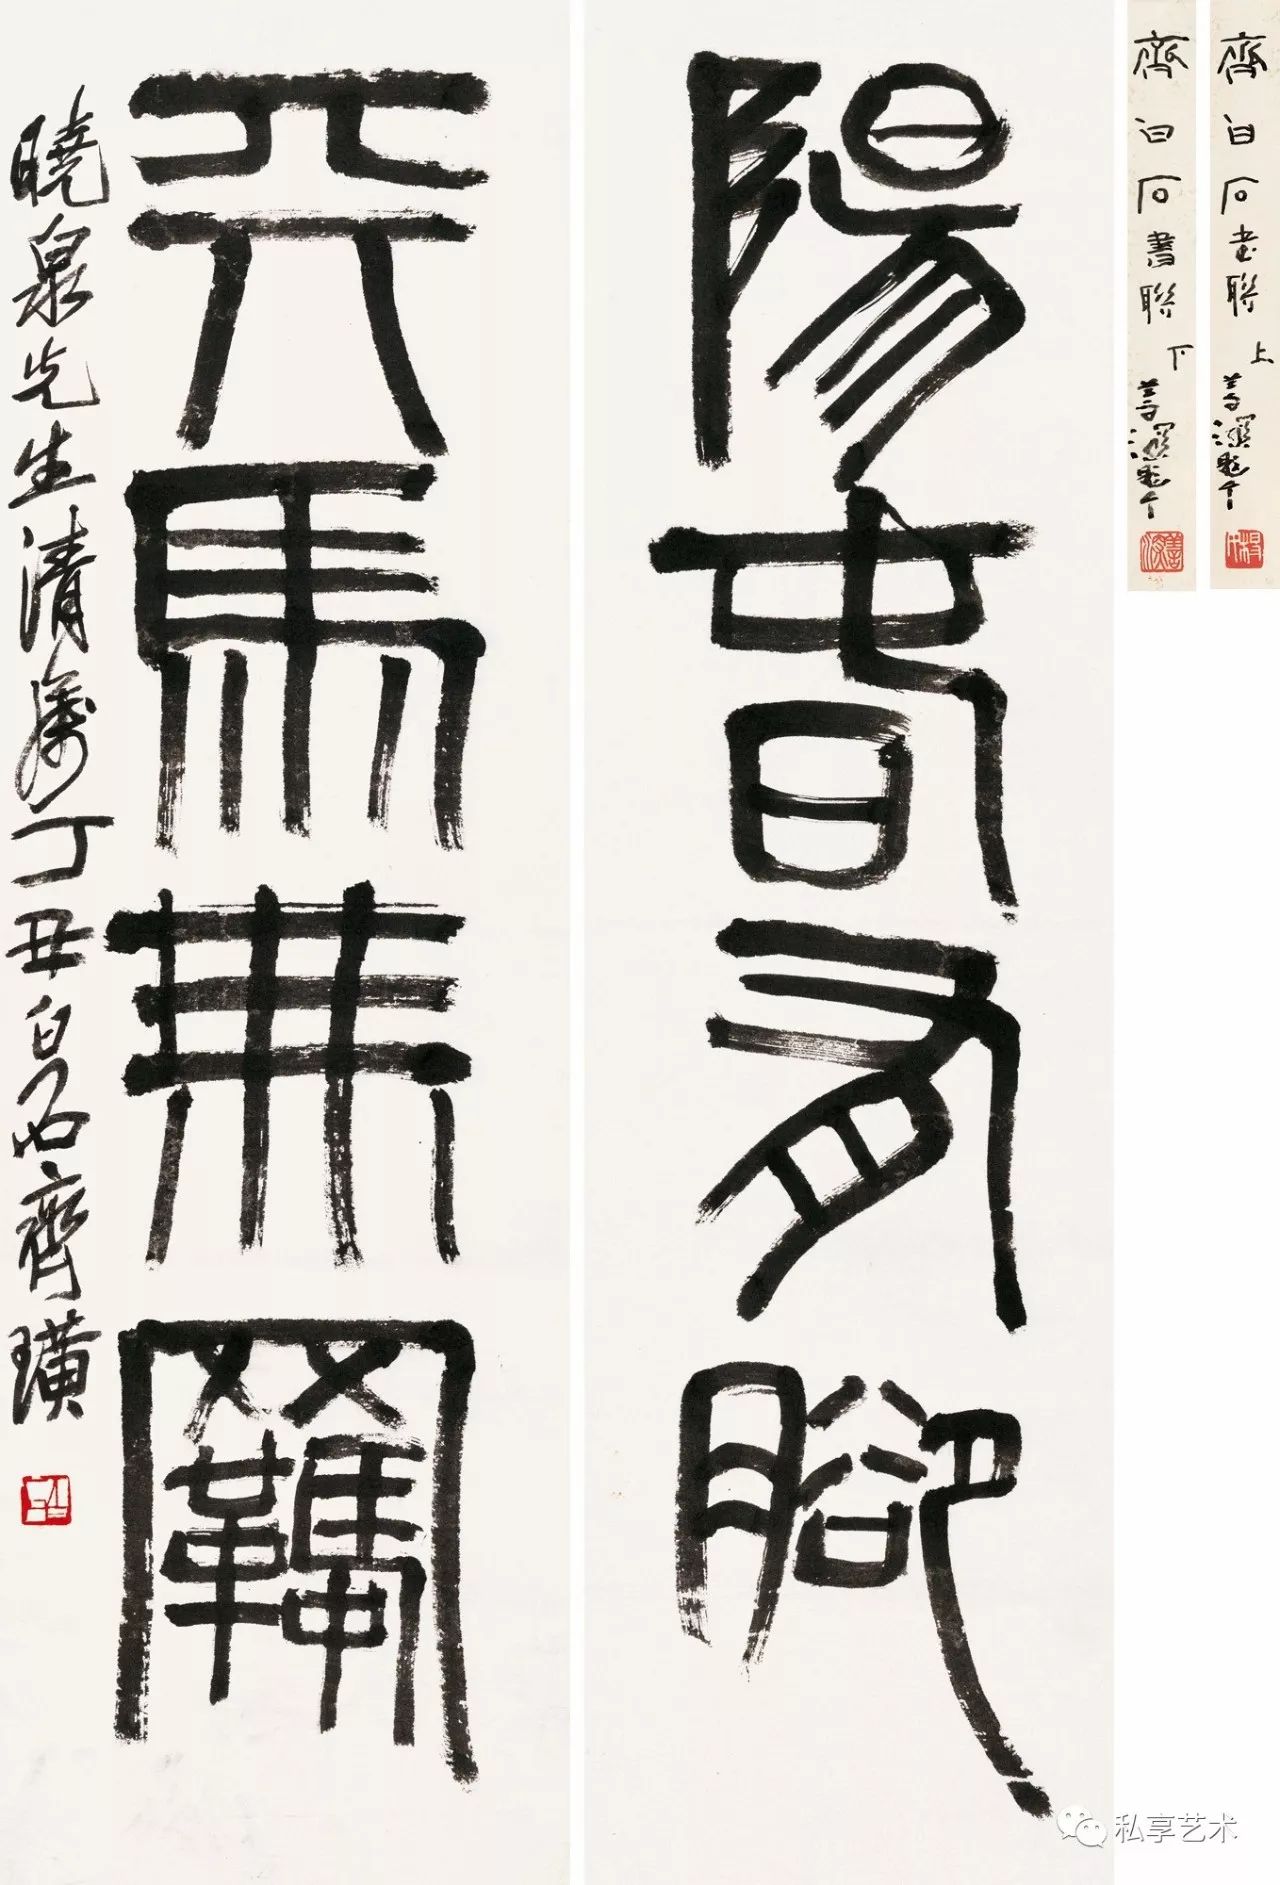 齊白石書聯 上
齊白石書聯 下
陽春有腳
天馬無羈
曉泉先生清屬丁丑白石齊璜
私享艺术